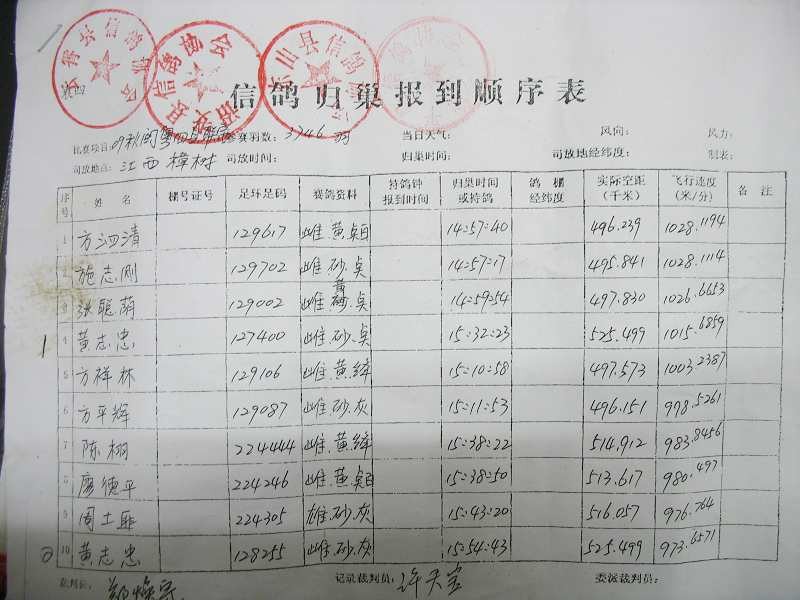 1
信鸽归巢报到顺序表
比赛项目: 09秋闽粤四县联赛 参赛羽数: 3746羽 当日天气: 风向: 风力:
司放地点: 江西樟树 司放时间: 归巢时间: 司放地经纬度: 制表:
序号 姓名 棚号证号 足环足码 赛鸽资料 持鸽钟报到时间 归巢时间或持鸽 鸽棚经纬度 实际空距(千米) 飞行速度(米/分) 备注
1 方泗清 129617 雌.黄. 14:57:40 496.239 1028.1194
2 施志刚 129702 雌.砂. 14:57:17 495.841 1028.1114
3 张聪荫 129002 雌.黄. 14:59:54 497.830 1026.6653
1 4 黄志忠 127400 雌.砂. 15:32:23 525.499 1015.6859
5 方祥林 129106 雌.黄.绛 15:10:58 497.573 1003.2387
6 方平辉 129087 雌.砂.灰 15:11:53 496.151 998.5261
7 陈栩 224444 雌.黄.绛 15:38:22 514.912 983.8456
8 廖德平 224246 雌.黄. 15:38:50 513.617 980.497
9 周士 224305 雄.砂.灰 15:43:20 516.057 976.764
2 10 黄志忠 128255 雌.砂.灰 15:54:43 525.499 973.6571
裁判长: 记录裁判员: 许天宝 委派裁判员: